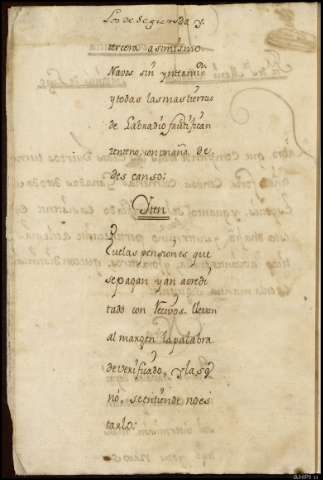 Los de segienda y
tercera asimismo
Navos sin yntermi
y todas las mas tierras
de Labradio fructifican
zenteno, con un año de
descanso:
Yten
Que las pensiones que
se pagan y an acredi
tado con Recivos llevan
al margen la palabra
de verificado, y la sq
no, se entiende no es
tarlo: